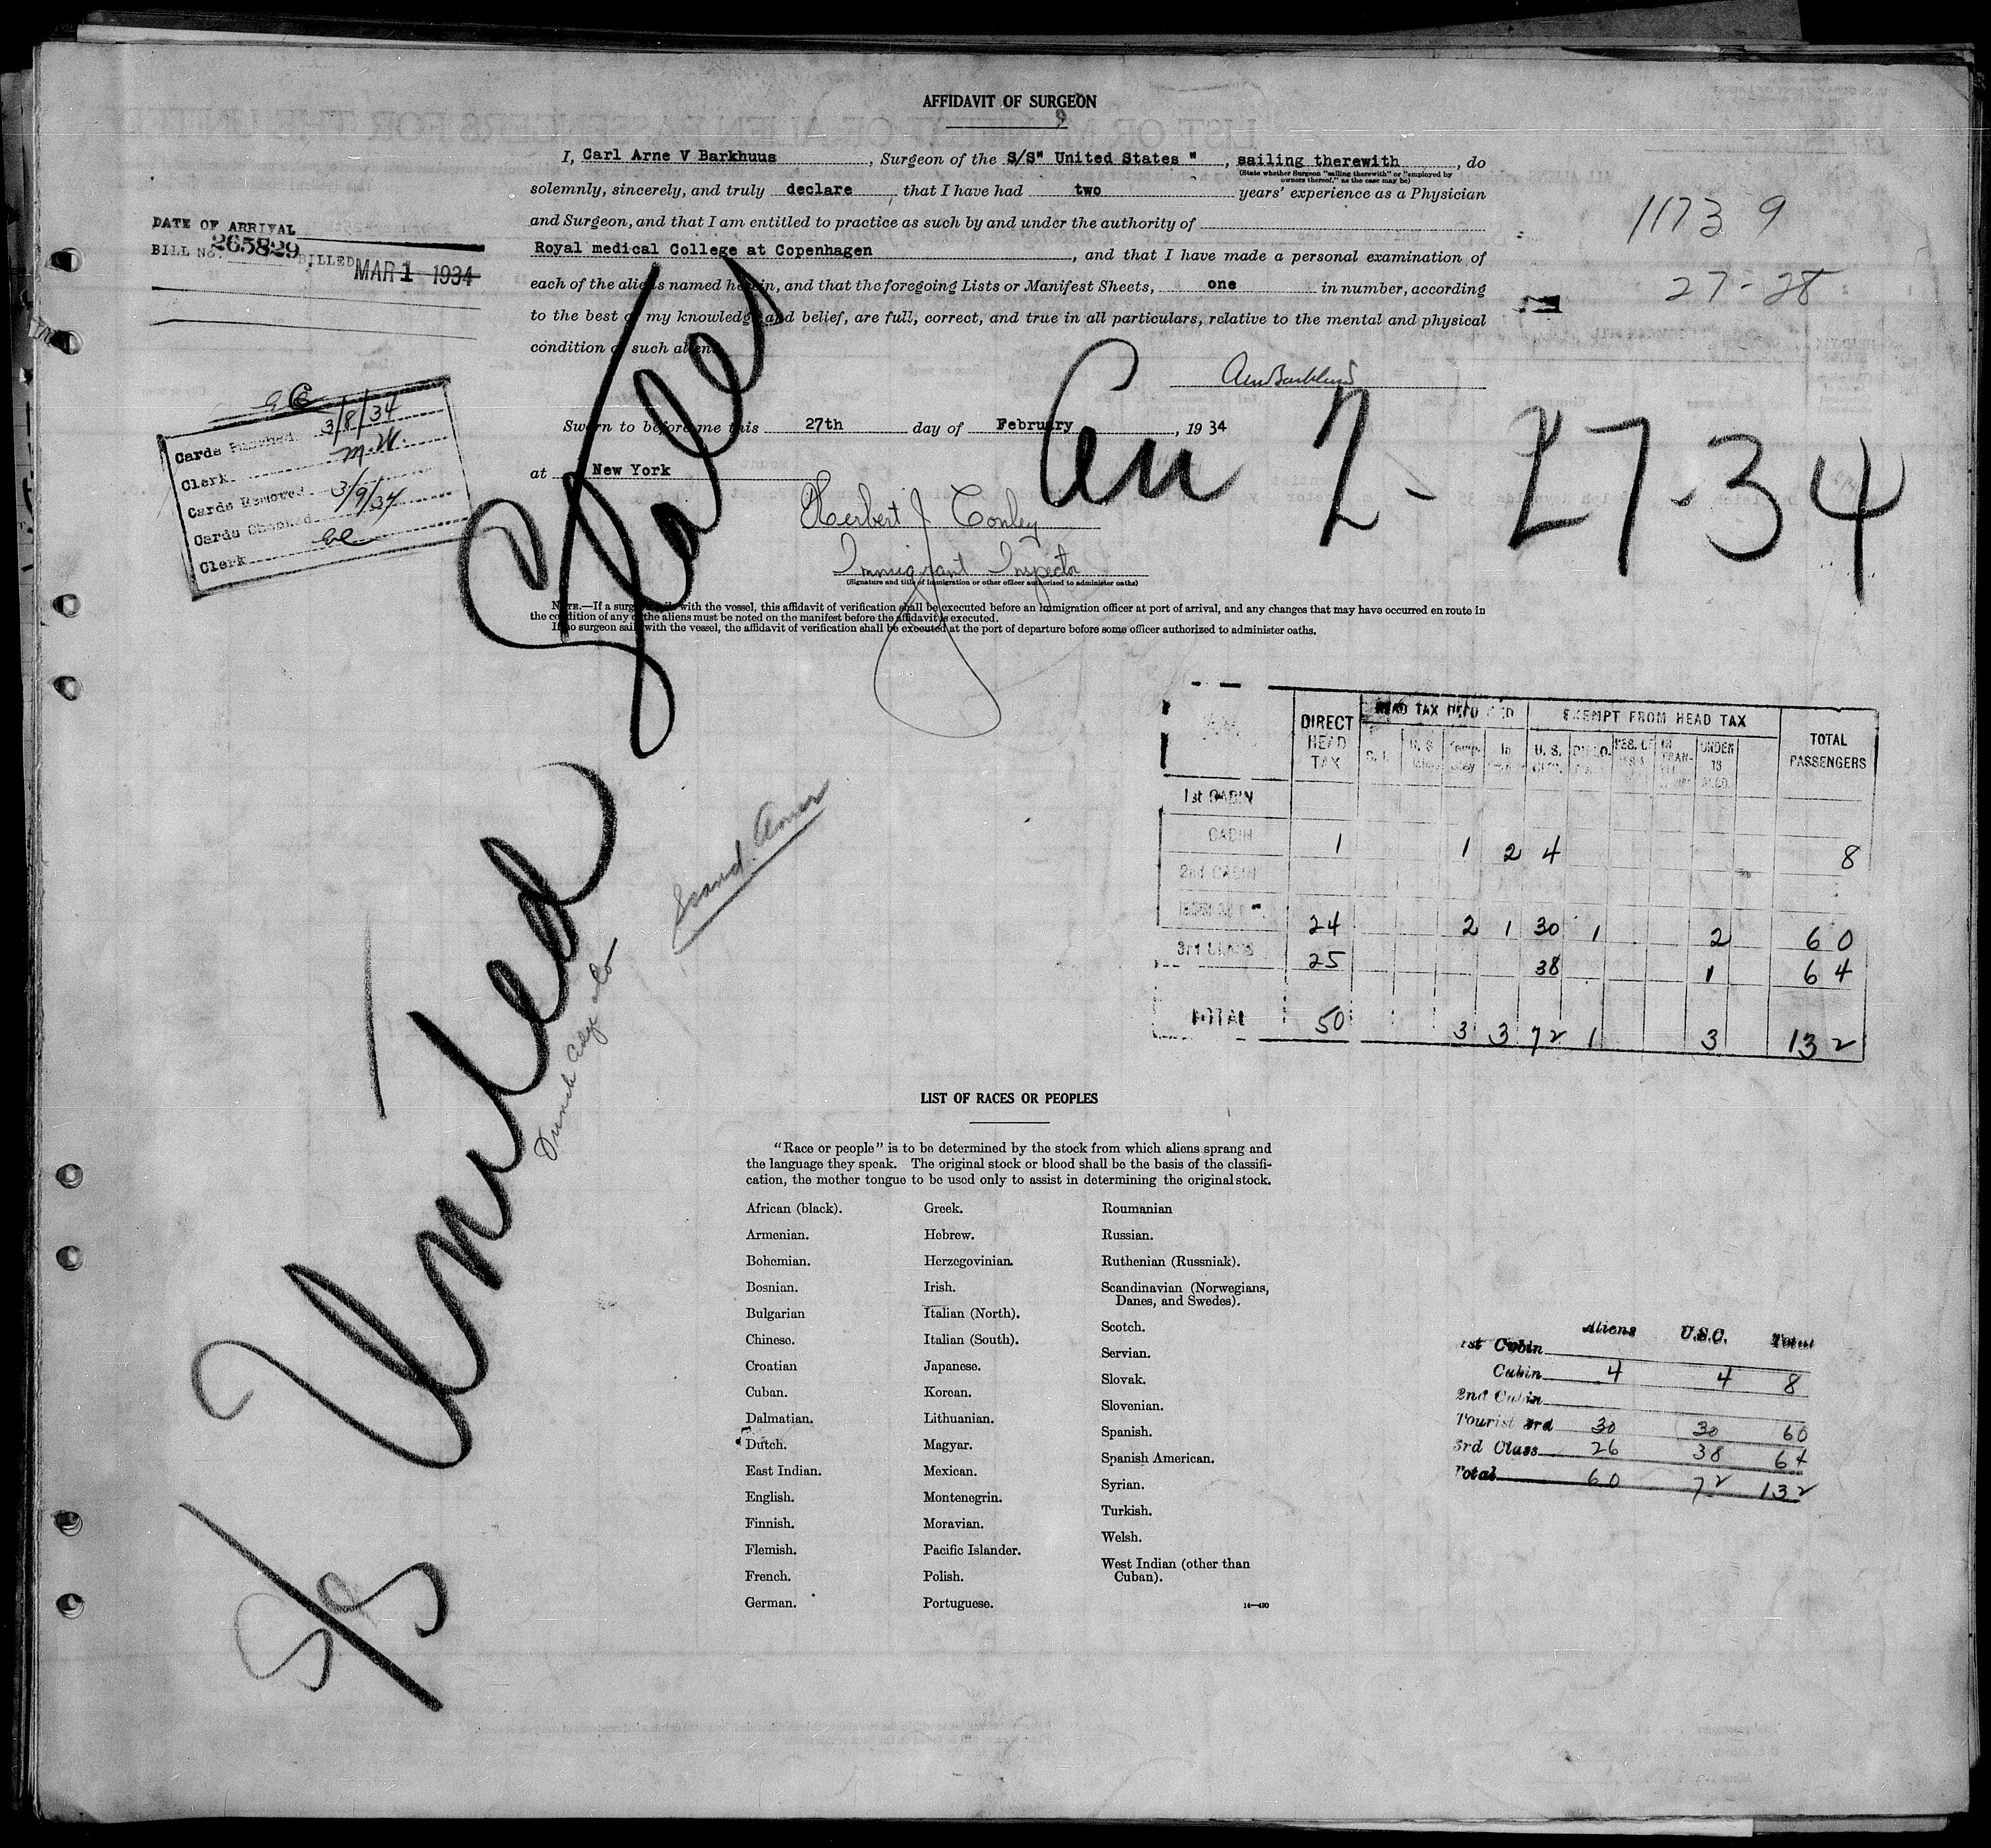 AFFIDAVIT OF SURGEON
9
I, Carl Arne V Barkhuus, Surgeon of the S/S" United States ", sailing therewith, do
(State whether Surgeon "sailing therewith" or "employed by
owners thereof," as the case may be)
solemnly, sincerely, and truly declare, that I have had two years' experience as a Physician
and Surgeon, and that I am entitled to practice as such by and under the authority of
Royal medical College at Copenhagen, and that I have made a personal examination of
each of the aliens named herein, and that the foregoing Lists or Manifest Sheets, one in number, according
to the best of my knowledge and belief, are full, correct, and true in all particulars, relative to the mental and physical
condition of such aliens.
Sworn to before me this 27th day of February, 1934
at New York
Herbert J Conley
Immigrant Inspector
(Signature and title of immigration or other officer authorized to administer oaths)
NOTE.—If a surgeon sails with the vessel, this affidavit of verification shall be executed before an immigration officer at port of arrival, and any changes that may have occurred en route in
the condition of any of the aliens must be noted on the manifest before the affidavit is executed.
If no surgeon sails with the vessel, the affidavit of verification shall be executed at the port of departure before some officer authorized to administer oaths.
DATE OF ARRIVAL
BILL No. 265829 BILLED MAR 1 1934
Cards Punched 3/8/34
Clerk M.W.
Cards Removed
Cards Checked 3/9/34
Clerk
11739
27-28
S/S United States
Arr 2-27-34
Scand. Amer
Funch Edye Co
DIRECT HEAD TAX HEAD TAX EXEMPT FROM HEAD TAX TOTAL PASSENGERS
1st CABIN
CABIN 1 1 2 4 8
2nd CABIN
24 2 1 30 1 2 60
3rd CLASS 25 38 1 64
TOTAL 50 3 3 72 1 3 132
LIST OF RACES OR PEOPLES
"Race or people" is to be determined by the stock from which aliens sprang and
the language they speak. The original stock or blood shall be the basis of the classifi-
cation, the mother tongue to be used only to assist in determining the original stock.
African (black).
Armenian.
Bohemian.
Bosnian.
Bulgarian
Chinese.
Croatian
Cuban.
Dalmatian.
Dutch.
East Indian.
English.
Finnish.
Flemish.
French.
German.
Greek.
Hebrew.
Herzegovinian.
Irish.
Italian (North).
Italian (South).
Japanese.
Korean.
Lithuanian.
Magyar.
Mexican.
Montenegrin.
Moravian.
Pacific Islander.
Polish.
Portuguese.
Roumanian
Russian.
Ruthenian (Russniak).
Scandinavian (Norwegians,
Danes, and Swedes).
Scotch.
Servian.
Slovak.
Slovenian.
Spanish.
Spanish American.
Syrian.
Turkish.
Welsh.
West Indian (other than
Cuban).
14—430
Aliens U.S.C. Total
1st Cabin
Cabin 4 4 8
2nd Cabin
Tourist 3rd 30 30 60
3rd Class 26 38 64
Total 60 72 132